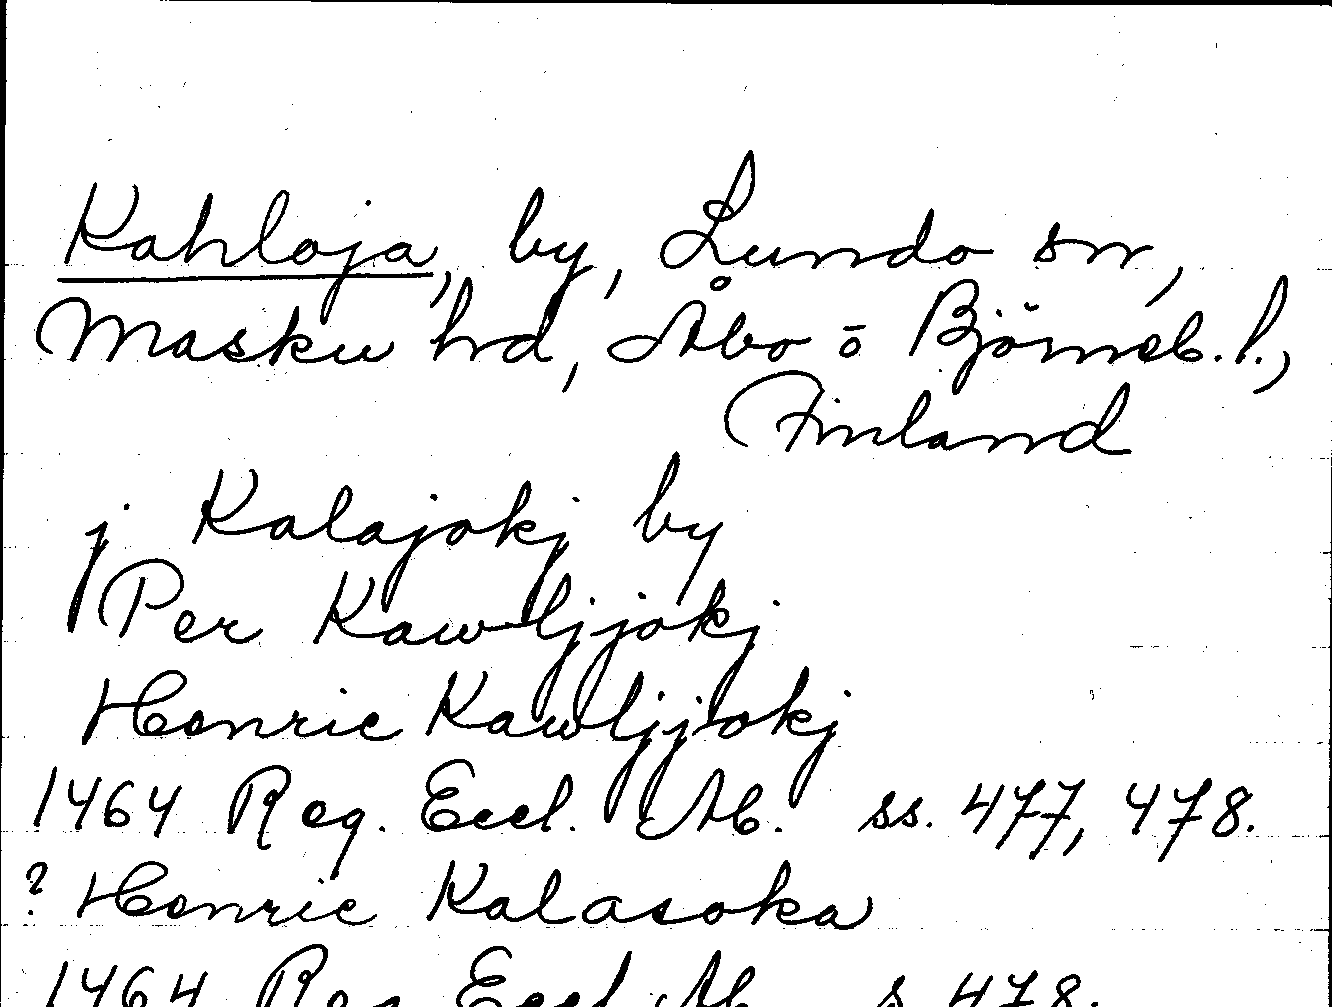 Kahloja, by, Lundo sn,
Masku hd, Åbo ō Björneb. l.,
Finland
j Kalajokj by
Per Kawljjokj
Henric Kawljjokj
1464 Reg. Eccl. Ab. ss. 477, 478.
? Henric Kalasoka
1464 Reg. Eccl. Ab. s. 478.